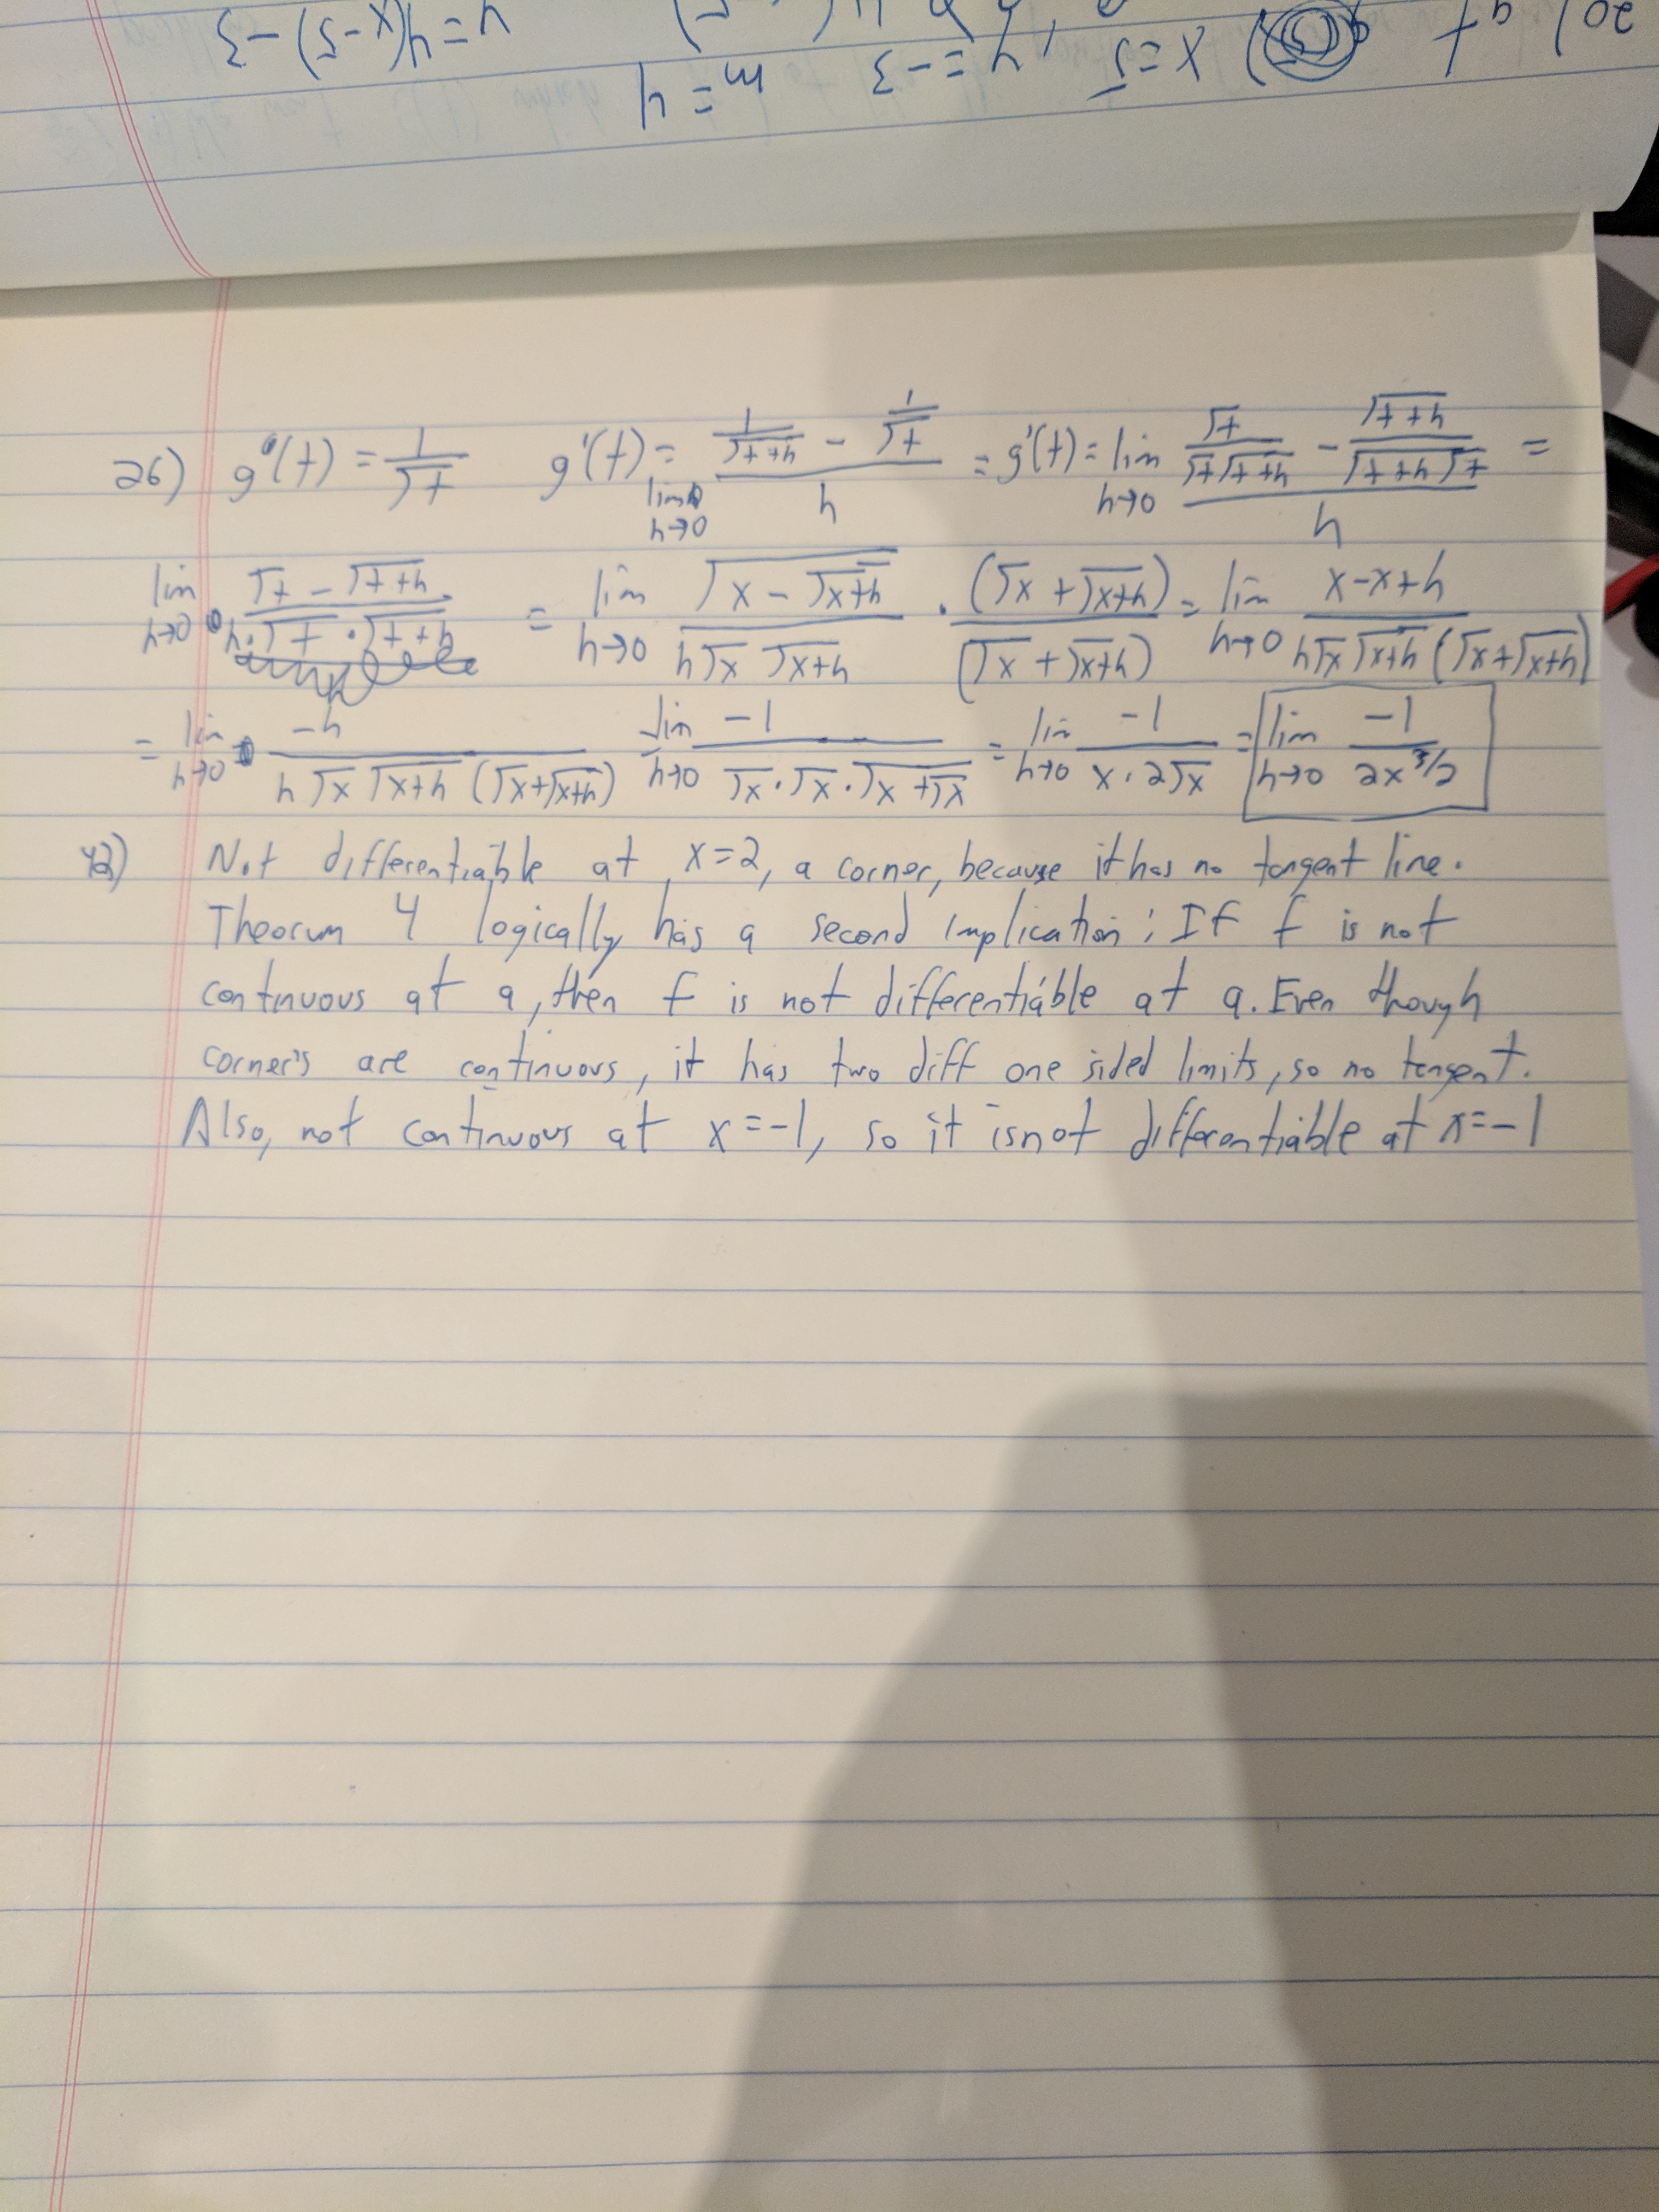 20) at x=5, y=-3 m=4
y=4(x-5)-3
26) g(t) = 1/√t g'(t) = lim h→0 (1/√t+h - 1/√t)/h = g'(t) = lim h→0 (√t/√t√t+h - √t+h/√t+h√t)/h =
lim h→0 (√t - √t+h)/(h·√t·√t+h) = lim h→0 √x-√x+h/(h√x√x+h) · (√x+√x+h)/(√x+√x+h) = lim h→0 x-x+h/(h√x√x+h(√x+√x+h))
= lim h→0 -h/(h√x√x+h(√x+√x+h)) lim h→0 -1/(√x·√x·√x+√x) = lim h→0 -1/(x·2√x) = lim h→0 -1/(2x^3/2)
42) Not differentiable at x=2, a corner, because it has no tangent line.
Theorum 4 logically has a second implication: If f is not
continuous at a, then f is not differentiable at a. Even though
corner's are continuous, it has two diff one sided limits, so no tangent.
Also, not continuous at x=-1, so it is not differentiable at x=-1